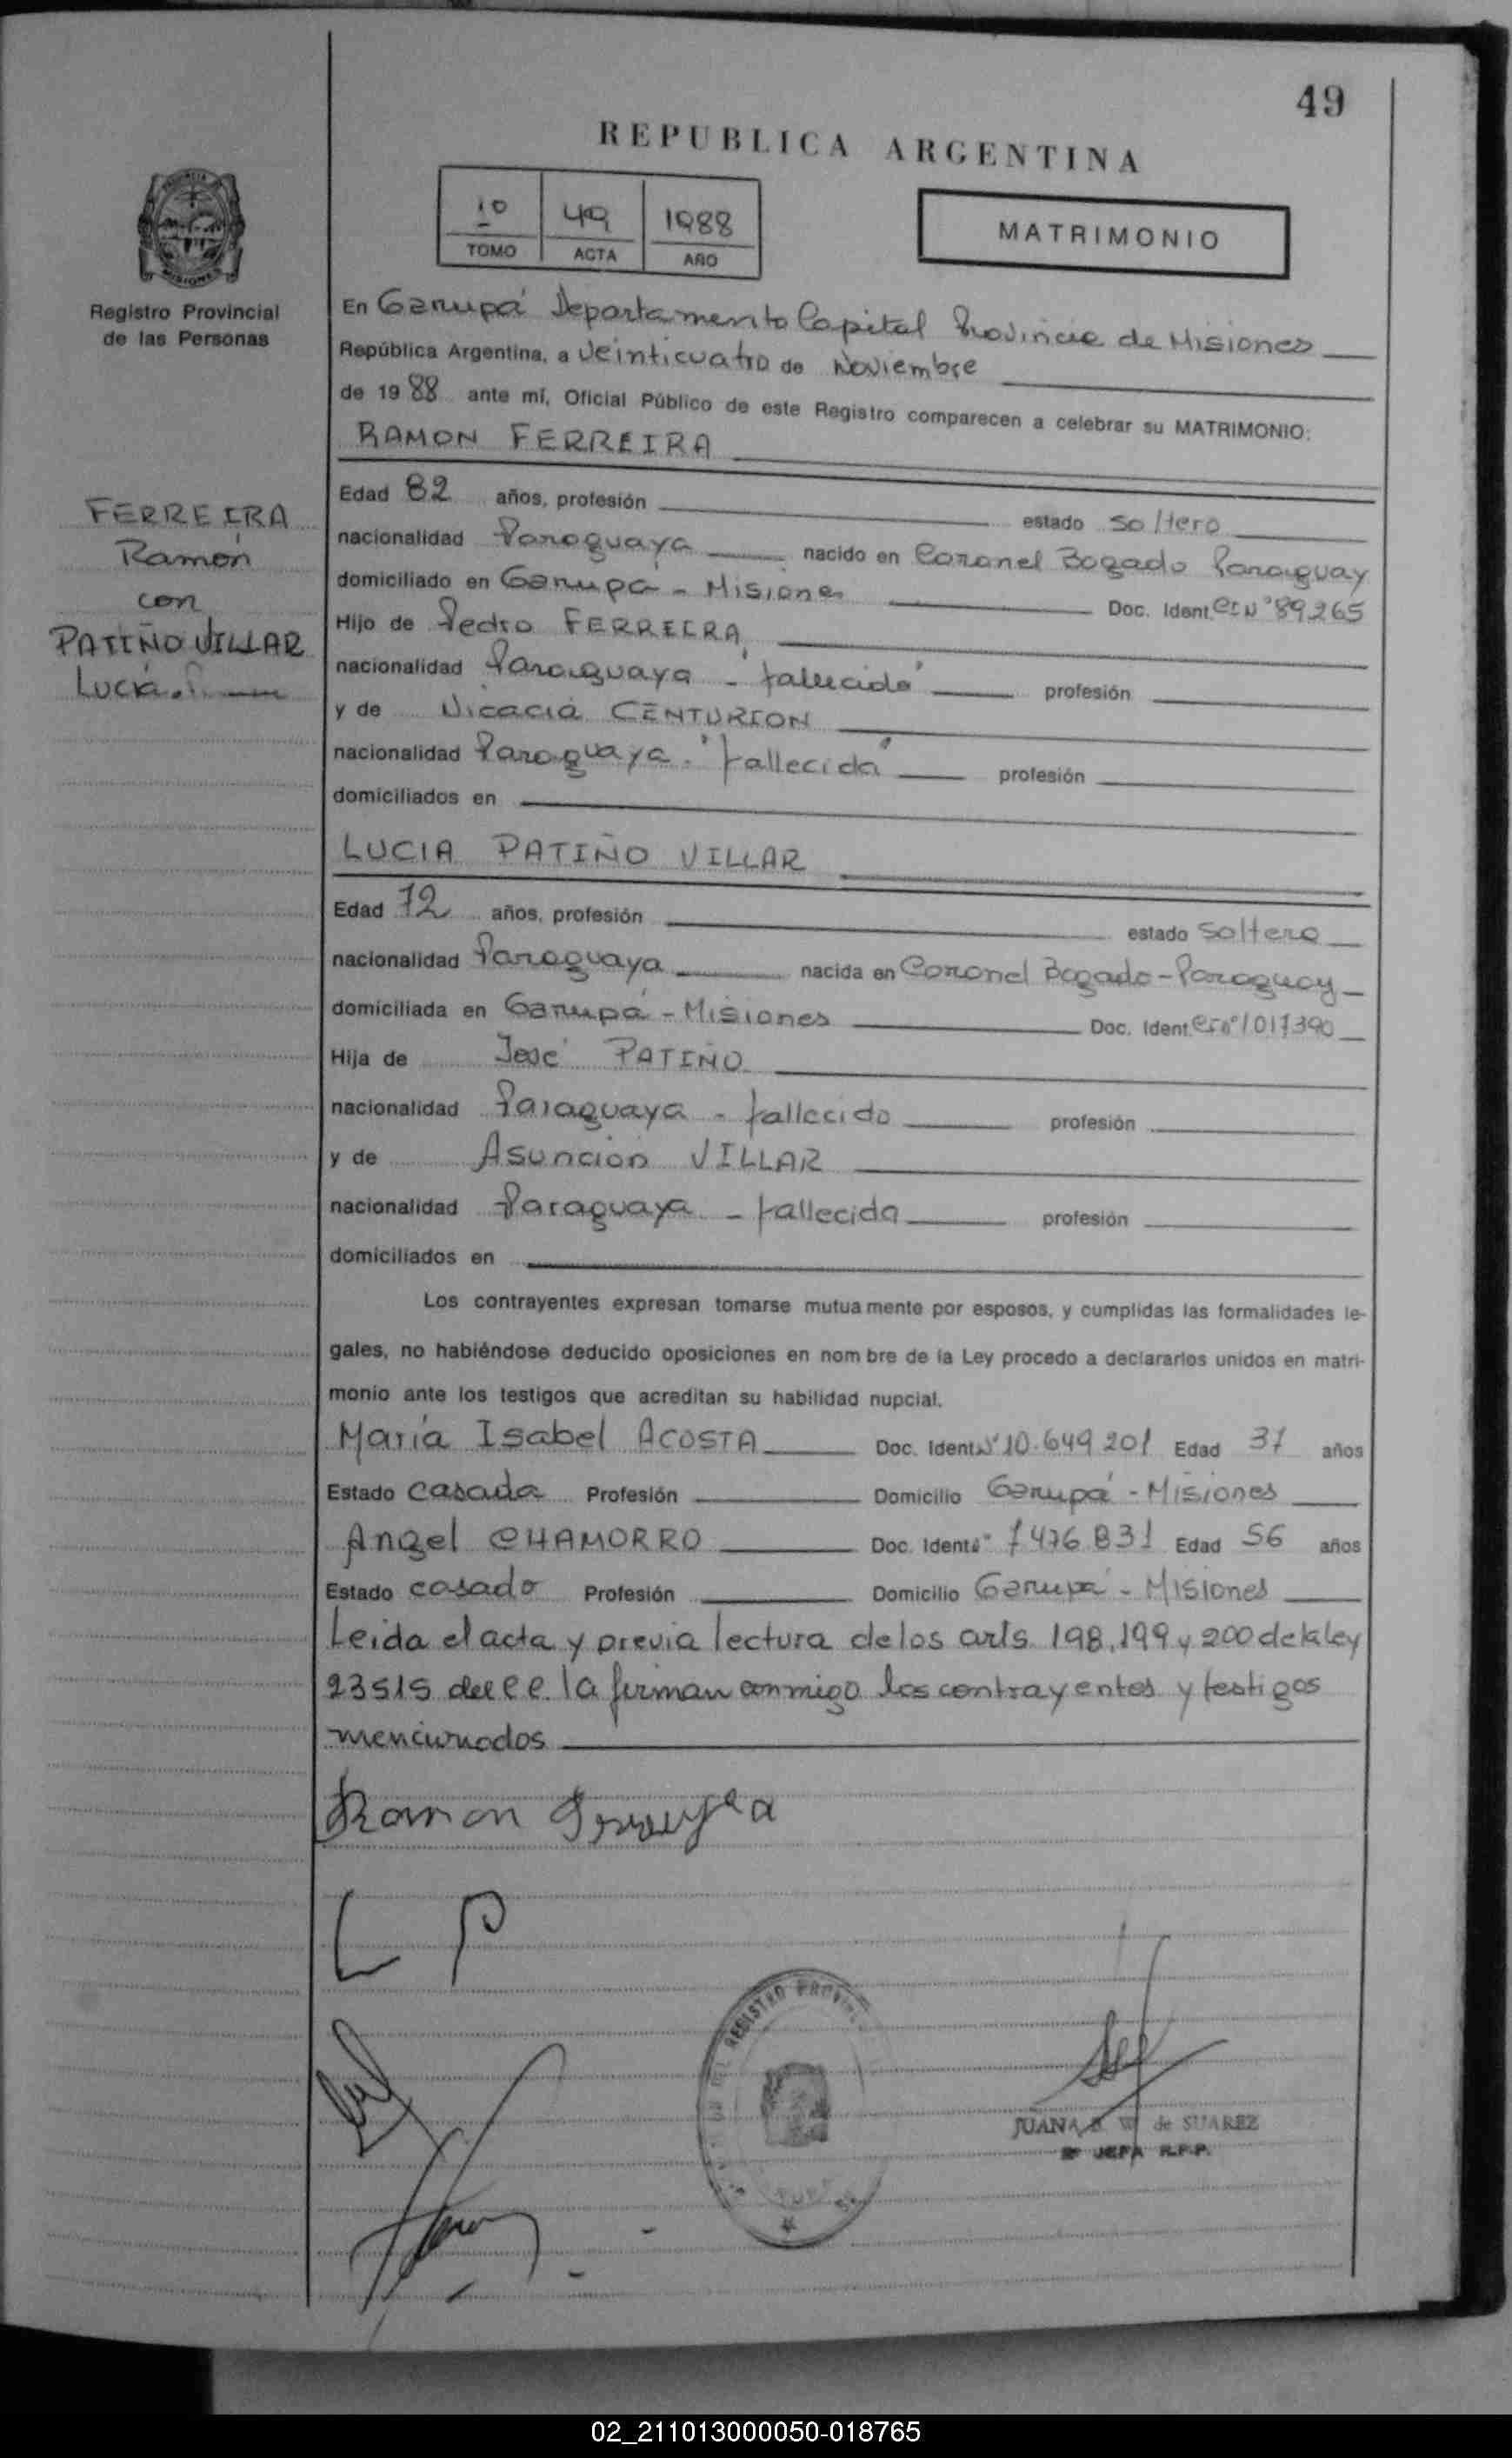 49
REPUBLICA ARGENTINA
10 49 1988
TOMO ACTA AÑO
MATRIMONIO
Registro Provincial
de las Personas
En Garupá Departamento Capital Provincia de Misiones
República Argentina, a Veinticuatro de Noviembre
de 1988 ante mí, Oficial Público de este Registro comparecen a celebrar su MATRIMONIO:
RAMON FERREIRA
FERREIRA
Ramón
con
PATIÑO VILLAR
Lucía
Edad 82 años, profesión estado soltero
nacionalidad Paraguaya nacido en Coronel Bogado Paraguay
domiciliado en Garupá - Misiones Doc. Ident. CI Nº 89265
Hijo de Pedro FERREIRA
nacionalidad Paraguaya - "fallecido" profesión
y de Nicacia CENTURION
nacionalidad Paraguaya. "fallecida" profesión
domiciliados en
LUCIA PATIÑO VILLAR
Edad 72 años, profesión estado soltera
nacionalidad Paraguaya nacida en Coronel Bogado - Paraguay
domiciliada en Garupá - Misiones Doc. Ident. CI Nº 1017390
Hija de José PATIÑO
nacionalidad Paraguaya - fallecido profesión
y de Asunción VILLAR
nacionalidad Paraguaya - fallecida profesión
domiciliados en
Los contrayentes expresan tomarse mutuamente por esposos, y cumplidas las formalidades le-
gales, no habiéndose deducido oposiciones en nombre de la Ley procedo a declararlos unidos en matri-
monio ante los testigos que acreditan su habilidad nupcial.
María Isabel ACOSTA Doc. Ident. Nº 10.649.201 Edad 37 años
Estado casada Profesión Domicilio Garupá - Misiones
Angel CHAMORRO Doc. Ident. Nº 7476831 Edad 56 años
Estado casado Profesión Domicilio Garupá - Misiones
Leida el acta y previa lectura de los arts. 198, 199 y 200 de la ley
23515 del C.C. la firman conmigo los contrayentes y testigos
mencionados
Ramon Ferreyra
L P
REGISTRO PROVIN
JUANA B. W de SUAREZ
JEFA R.P.P.
02_211013000050-018765